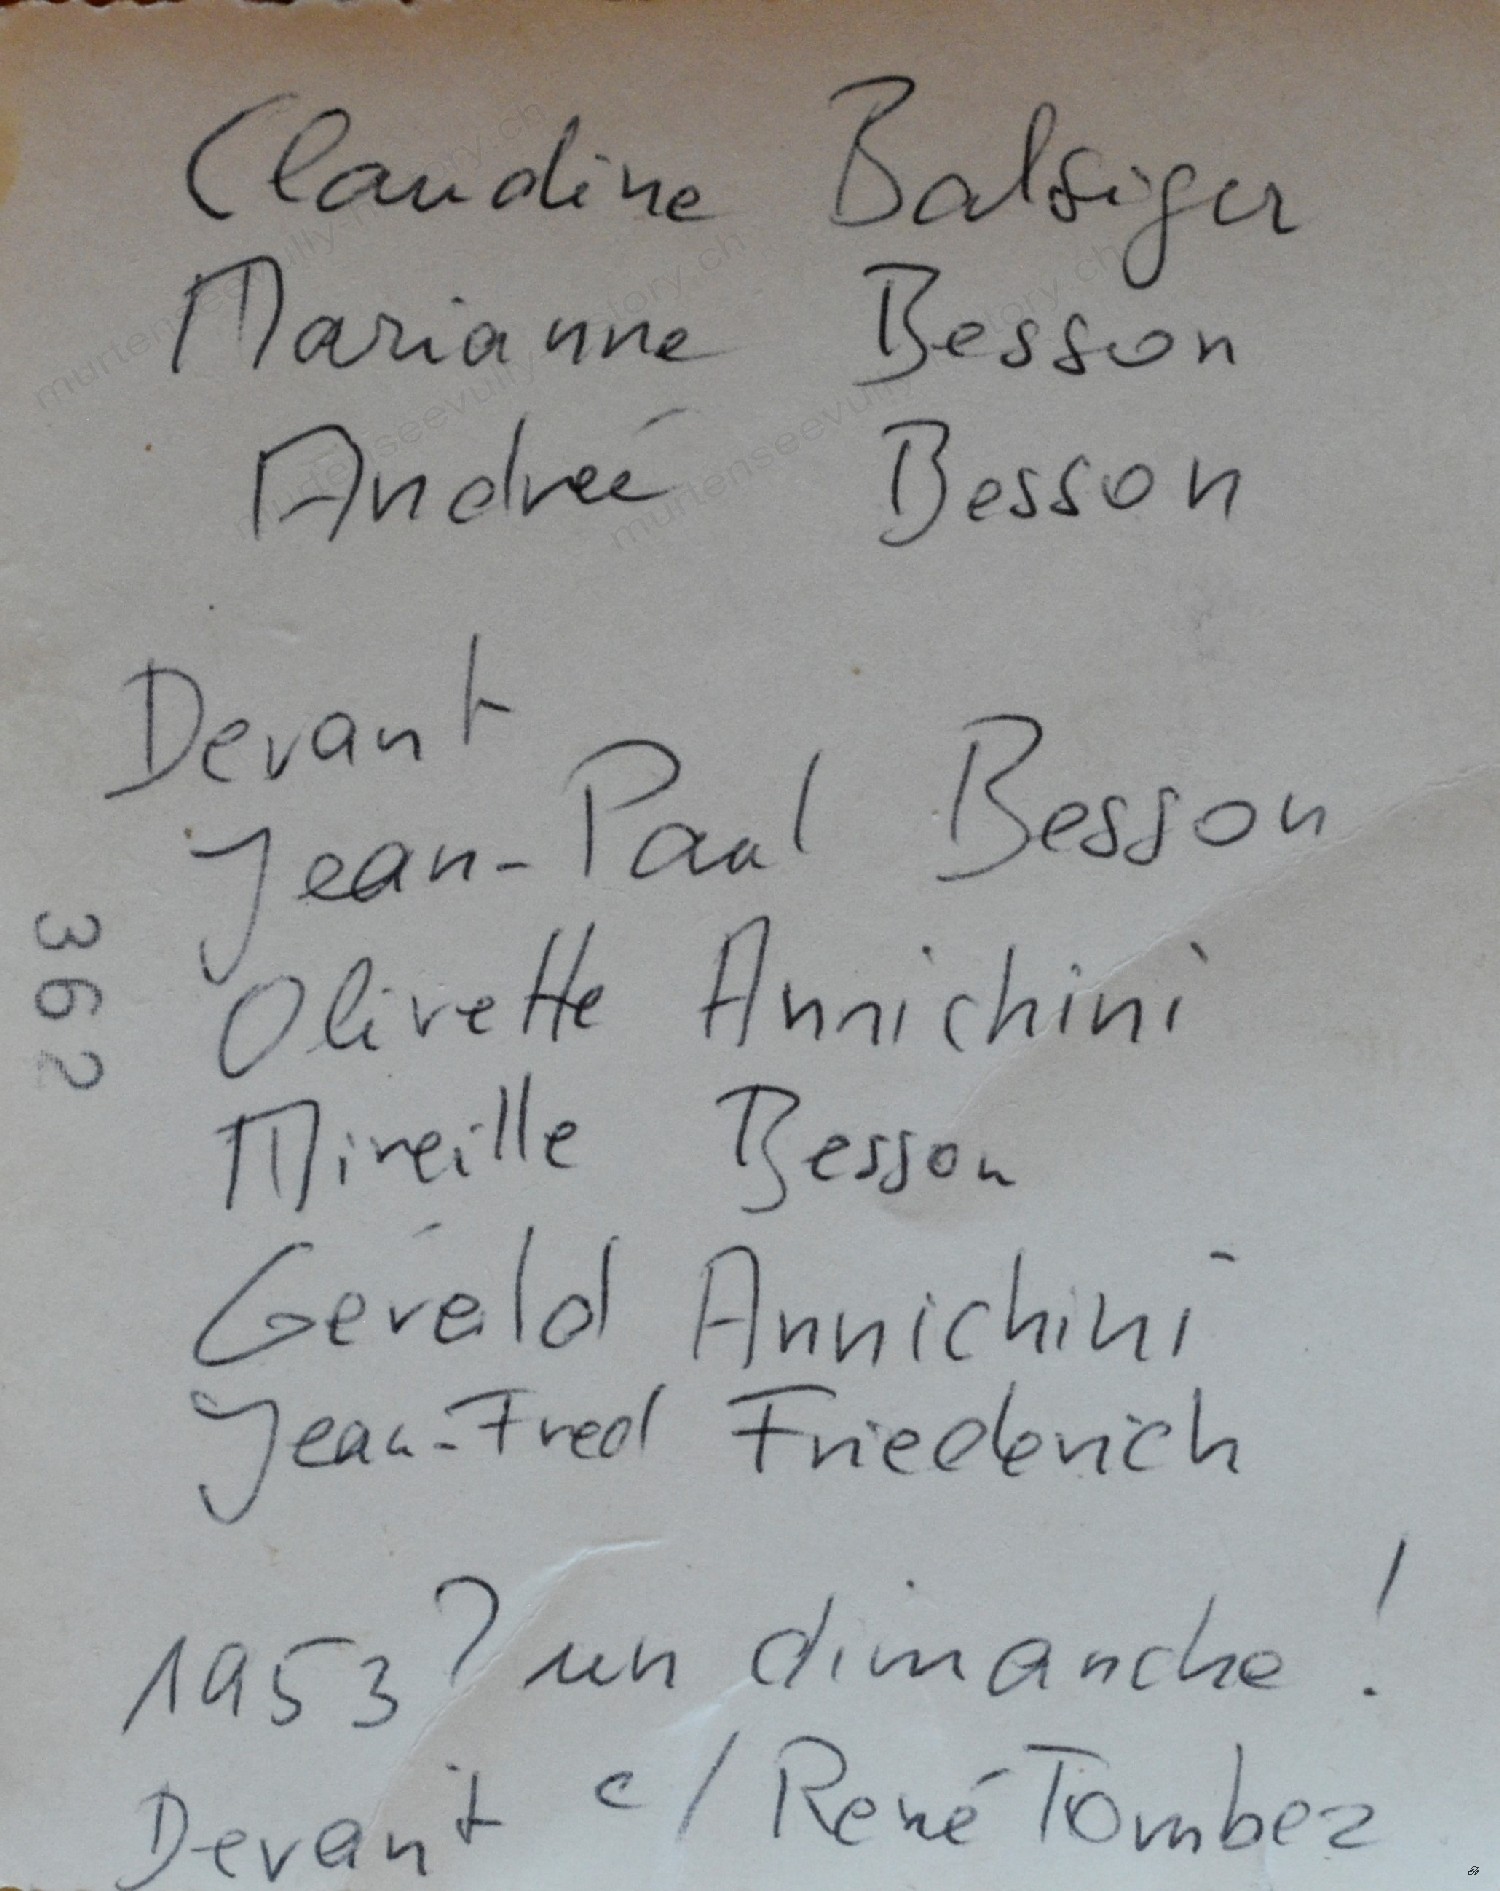 Claudine Balsiger
Marianne Besson
Andreé Besson
Devant
Jean-Paul Besson
Olivette Annichini
Mireille Besson
Gérald Annichini
Jean-Fred Friederich
1953? un dimanche!
Devant c/ René Tombez
362
murtenseevully-history.ch
murtenseevully-history.ch
murtenseevully-history.ch